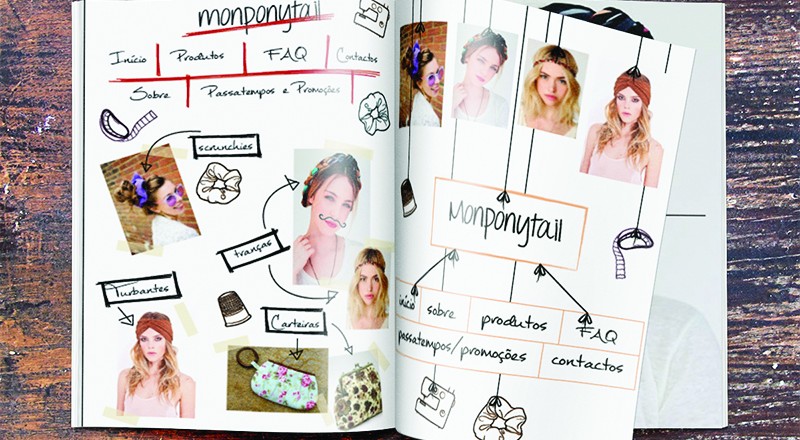 monponytail
Início Produtos FAQ Contactos
Sobre Passatempos e Promoções
scrunchies
tranças
Turbantes
Carteiras
Monponytail
início sobre produtos FAQ
passatempos/promoções contactos